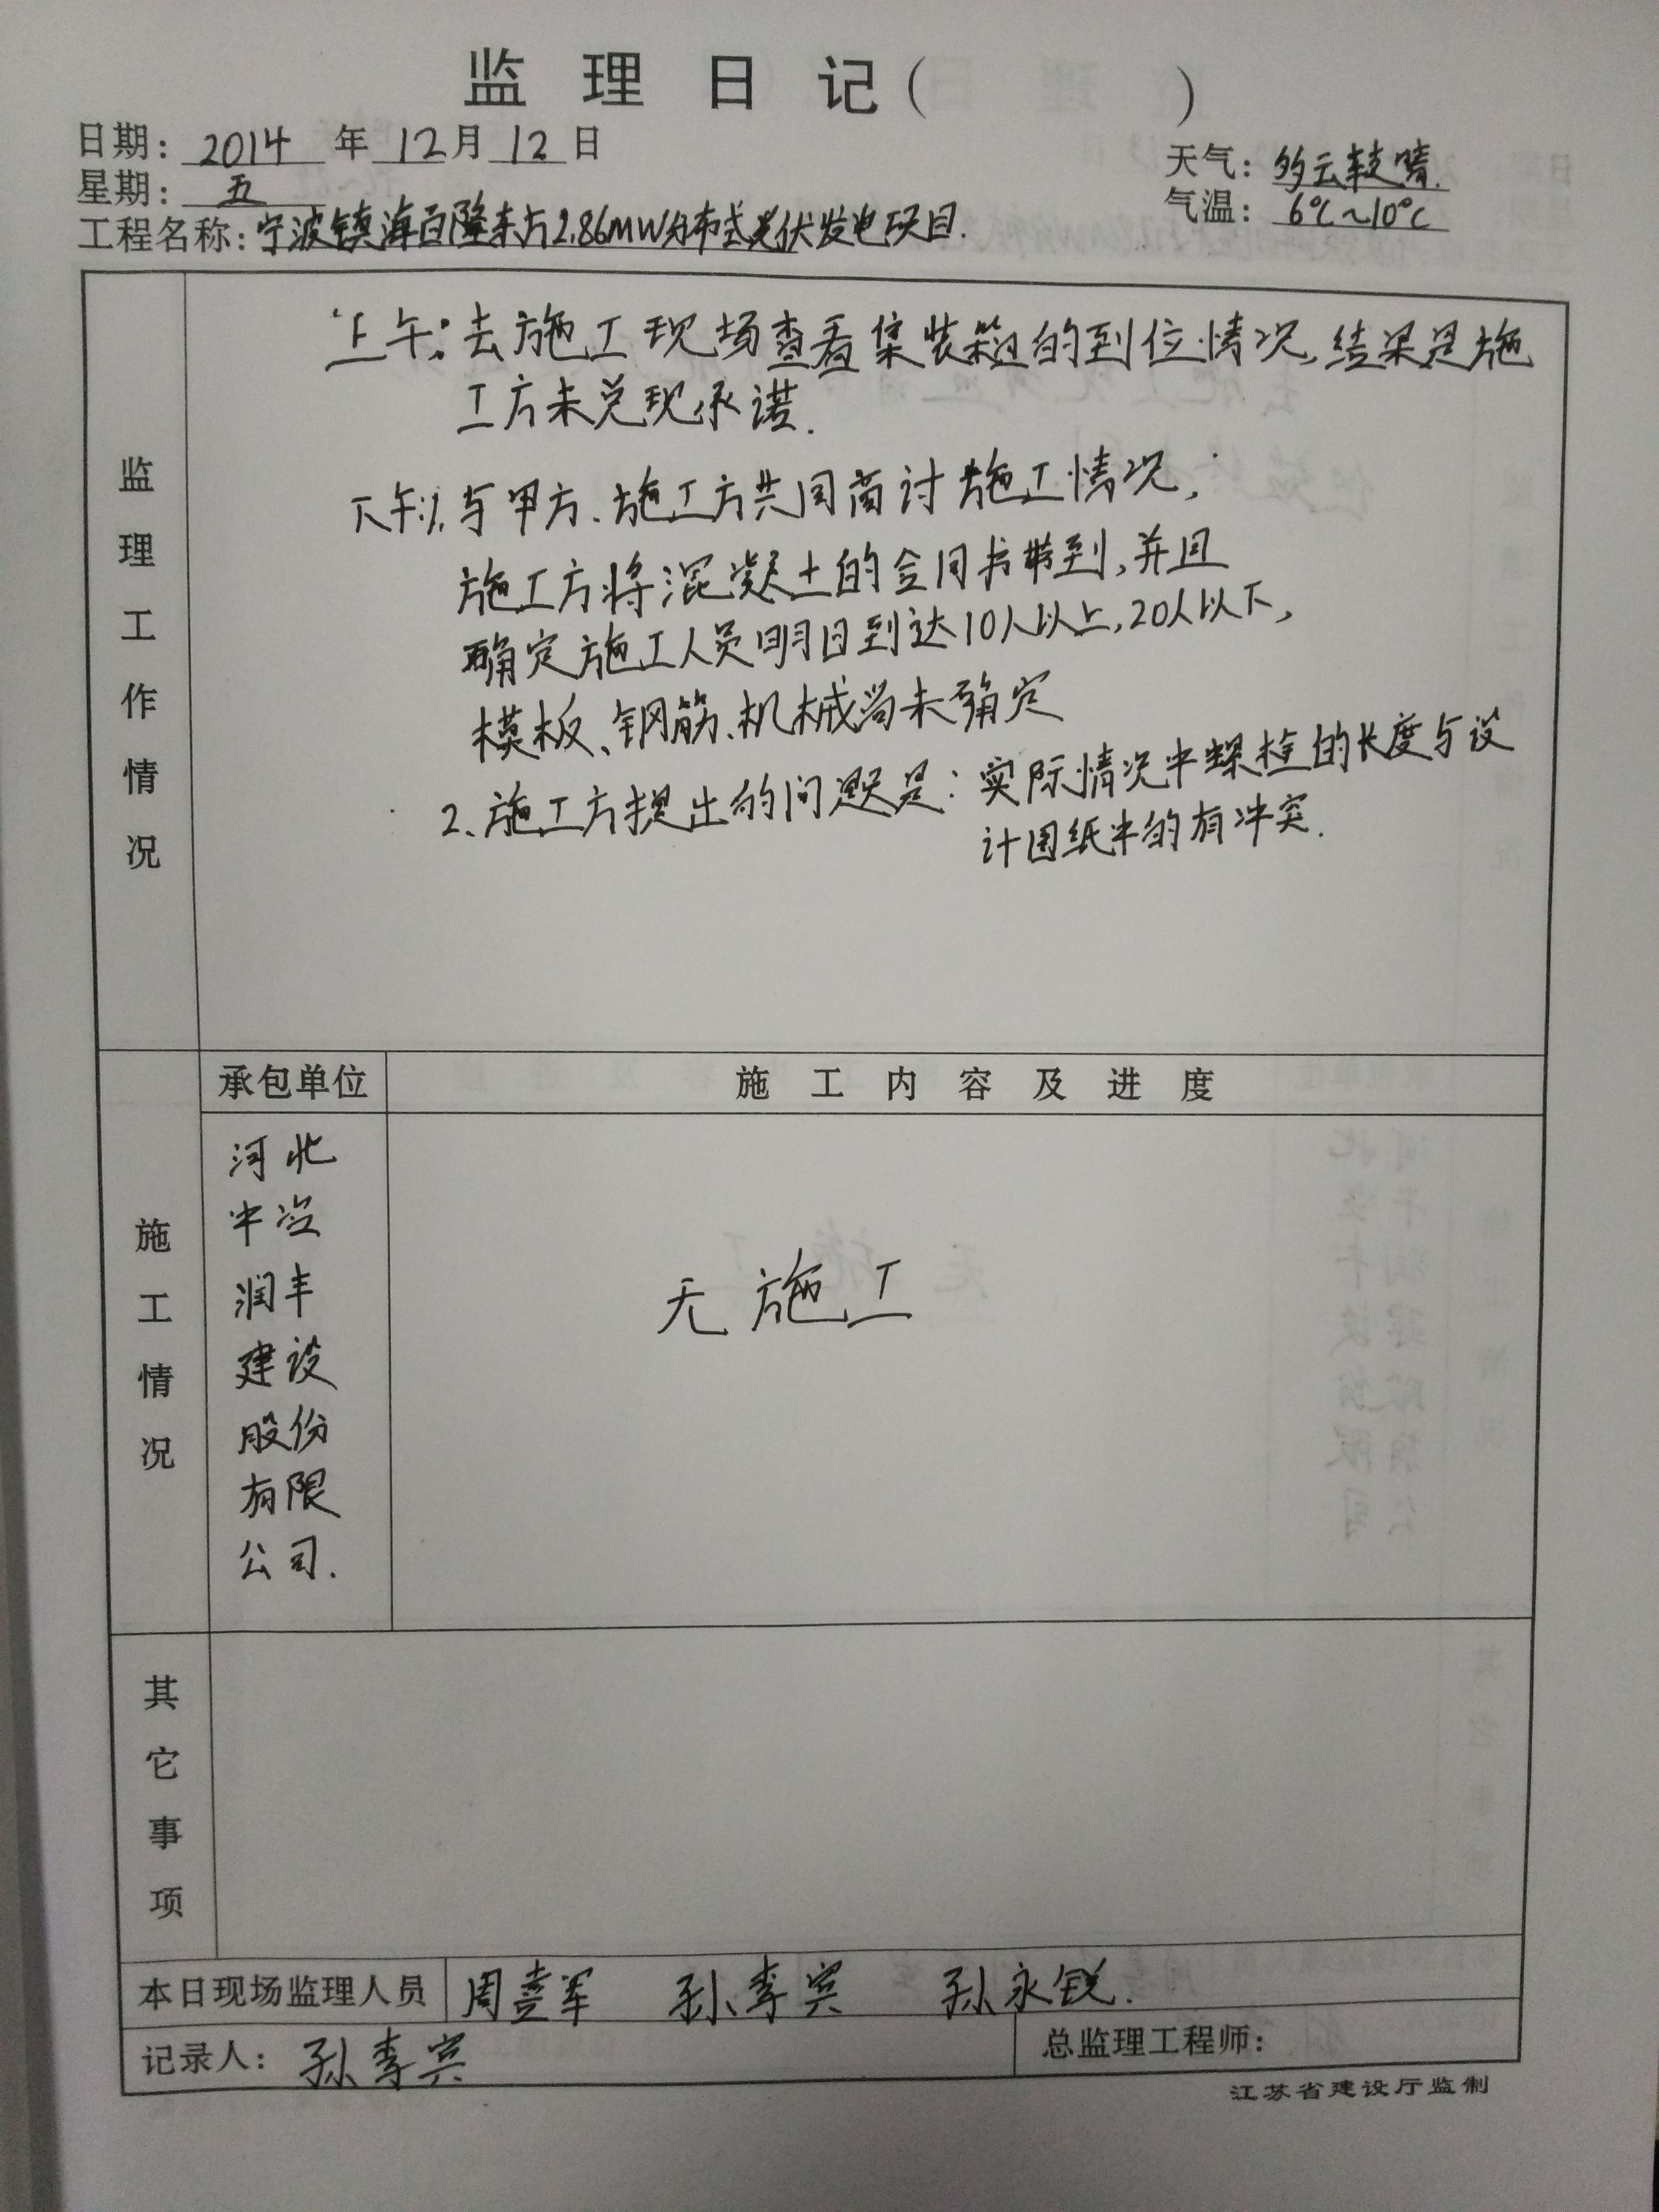 监理日记（ ）
日期：2014年12月12日
天气：多云转晴.
星期：五
气温：6℃~10℃
工程名称：宁波镇海百隆东方2.86MW分布式光伏发电项目.
监理工作情况
上午：去施工现场查看集装箱的到位情况，结果是施
工方未兑现承诺.
下午：1、与甲方、施工方共同商讨施工情况，
施工方将混凝土的合同书带到，并且
确定施工人员明日到达10人以上，20人以下，
模板、钢筋、机械尚未确定
2、施工方提出的问题是：实际情况中螺栓的长度与设
计图纸中的有冲突.
施工情况
承包单位
施工内容及进度
河北
润丰
建设
股份
有限
公司.
无施工
其它事项
本日现场监理人员 周喜军 孙李宾 孙永锐.
记录人：孙李宾
总监理工程师：
江苏省建设厅监制